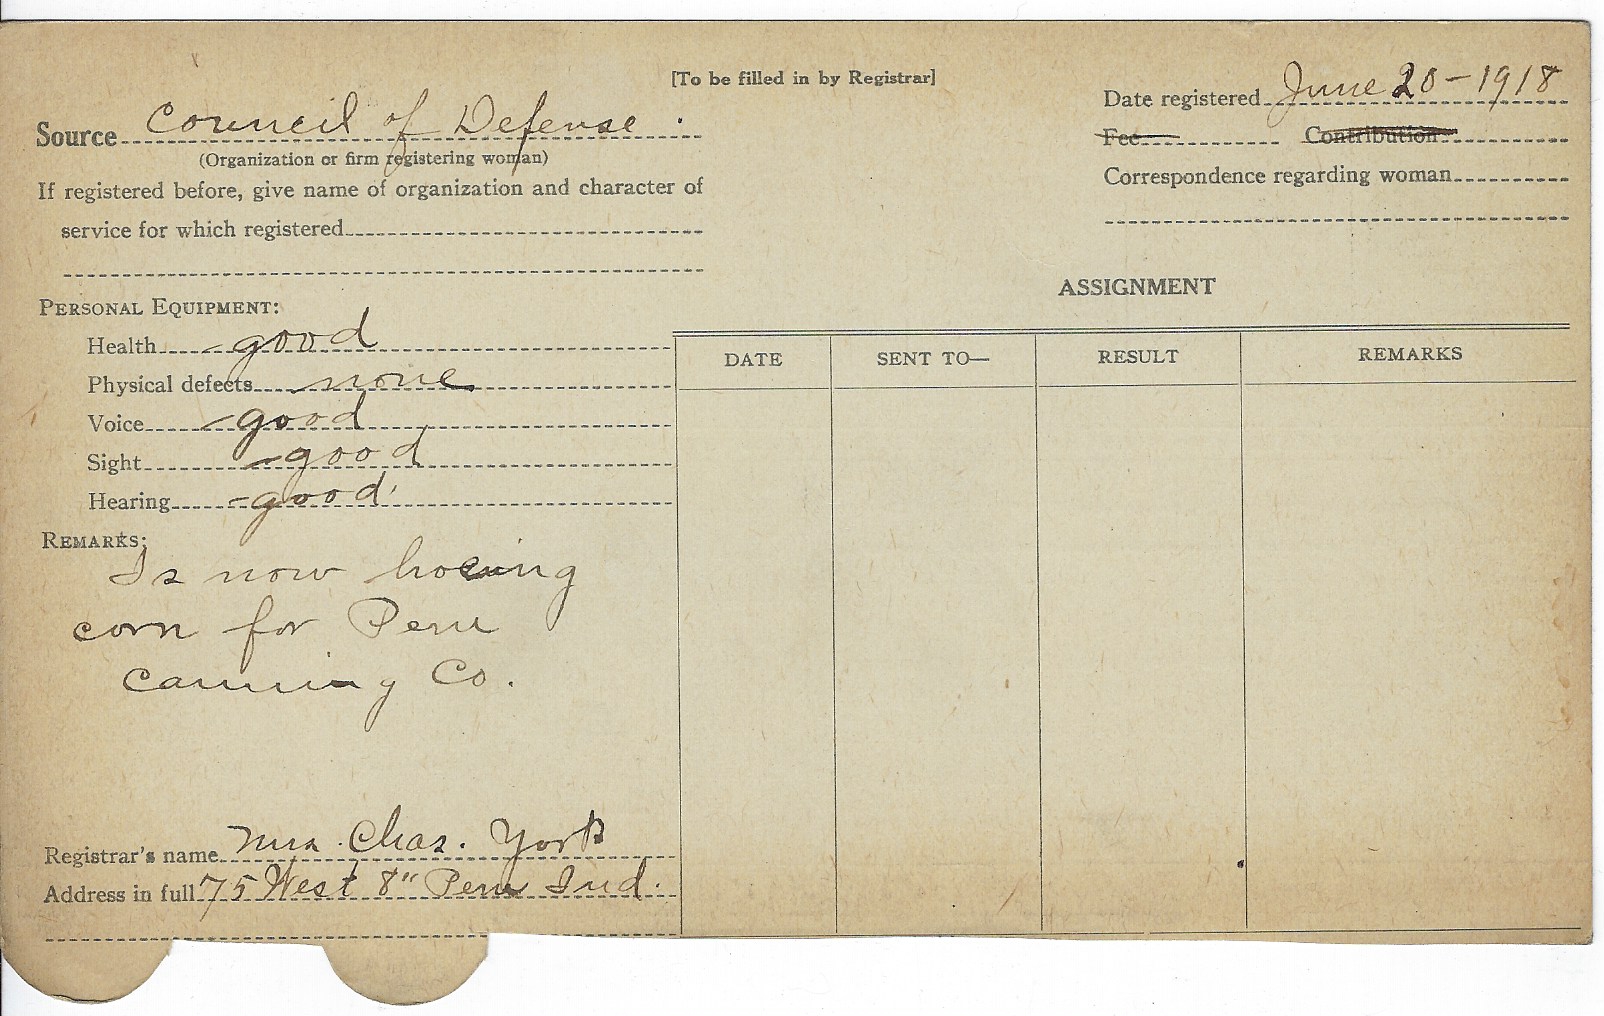 [To be filled in by Registrar]
Date registered June 20-1918
Source Council of Defense.
Fee Contribution
(Organization or firm registering woman)
Correspondence regarding woman
If registered before, give name of organization and character of
service for which registered
ASSIGNMENT
PERSONAL EQUIPMENT:
Health good
Physical defects none
Voice good
Sight good
Hearing good
DATE SENT TO— RESULT REMARKS
REMARKS:
Is now hoeing
corn for Peru
Canning Co.
Registrar's name Mrs. Chas. York
Address in full 75 West 8" Peru Ind.